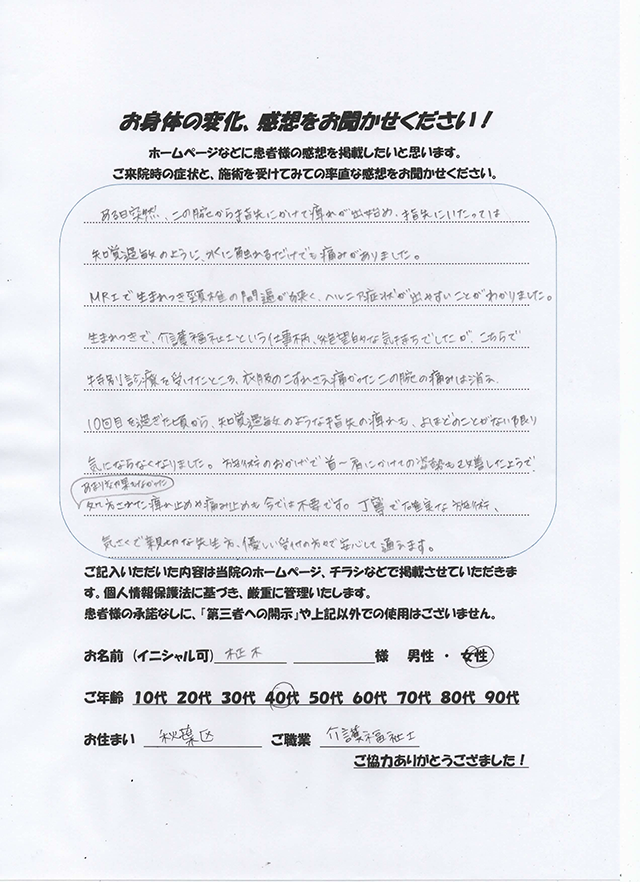 お身体の変化、感想をお聞かせください!
ホームページなどに患者様の感想を掲載したいと思います。
ご来院時の症状と、施術を受けてみての率直な感想をお聞かせください。
ある日突然、二の腕から指先にかけて痺れが出始め、指先にいたっては
知覚過敏のように、水に触れるだけでも痛みがありました。
MRIで生まれつき頸椎の間隔が狭く、ヘルニア症状が出やすいことがわかりました。
生まれつきで、介護福祉士という仕事柄、絶望的な気持ちでしたが、こちらで
特別診療を受けたところ、衣服のこすれさえ痛かった二の腕の痛みは消え
10回目を過ぎた頃から、知覚過敏のような指先の痺れも、よほどのことがない限り
気にならなくなりました。施術のおかげで首〜肩にかけての姿勢も改善したようで
あまり効果もなかった
処方された痺れ止めや痛み止めも今では不要です。丁寧で確実な施術、
気さくで親切な先生方、優しい受付の方々で安心して通えます。
ご記入いただいた内容は当院のホームページ、チラシなどで掲載させていただきま
す。個人情報保護法に基づき、厳重に管理いたします。
患者様の承諾なしに、「第三者への開示」や上記以外での使用はございません。
お名前(イニシャル可) 柾木 様 男性・女性
ご年齢 10代 20代 30代 40代 50代 60代 70代 80代 90代
お住まい 秋葉区 ご職業 介護福祉士
ご協力ありがとうござました!